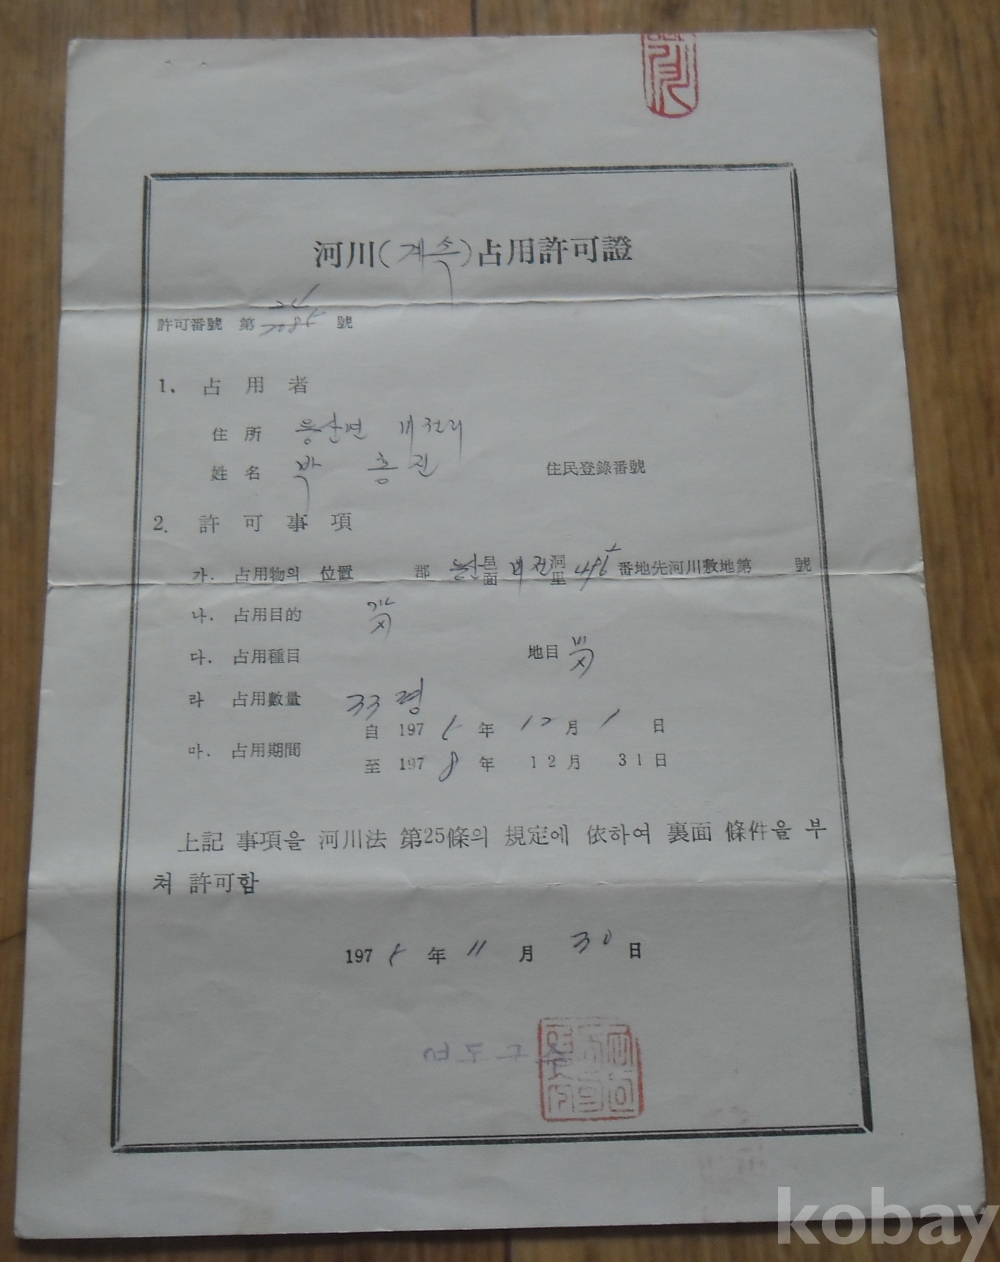 河川(계속)占用許可證
許可番號 第 號
1. 占用者
住所 용산면
姓名 박 종진 住民登錄番號
2. 許可事項
가. 占用物의 位置 郡 邑面 洞里 番地先河川敷地第 號
나. 占用目的
다. 占用種目 地目
라 占用數量 33평
마. 占用期間
自 1975年 12月 1日
至 1978年 12月 31日
上記 事項을 河川法 第25條의 規定에 依하여 裏面 條件을 부
쳐 許可함
1975年 11月 30日
kobay